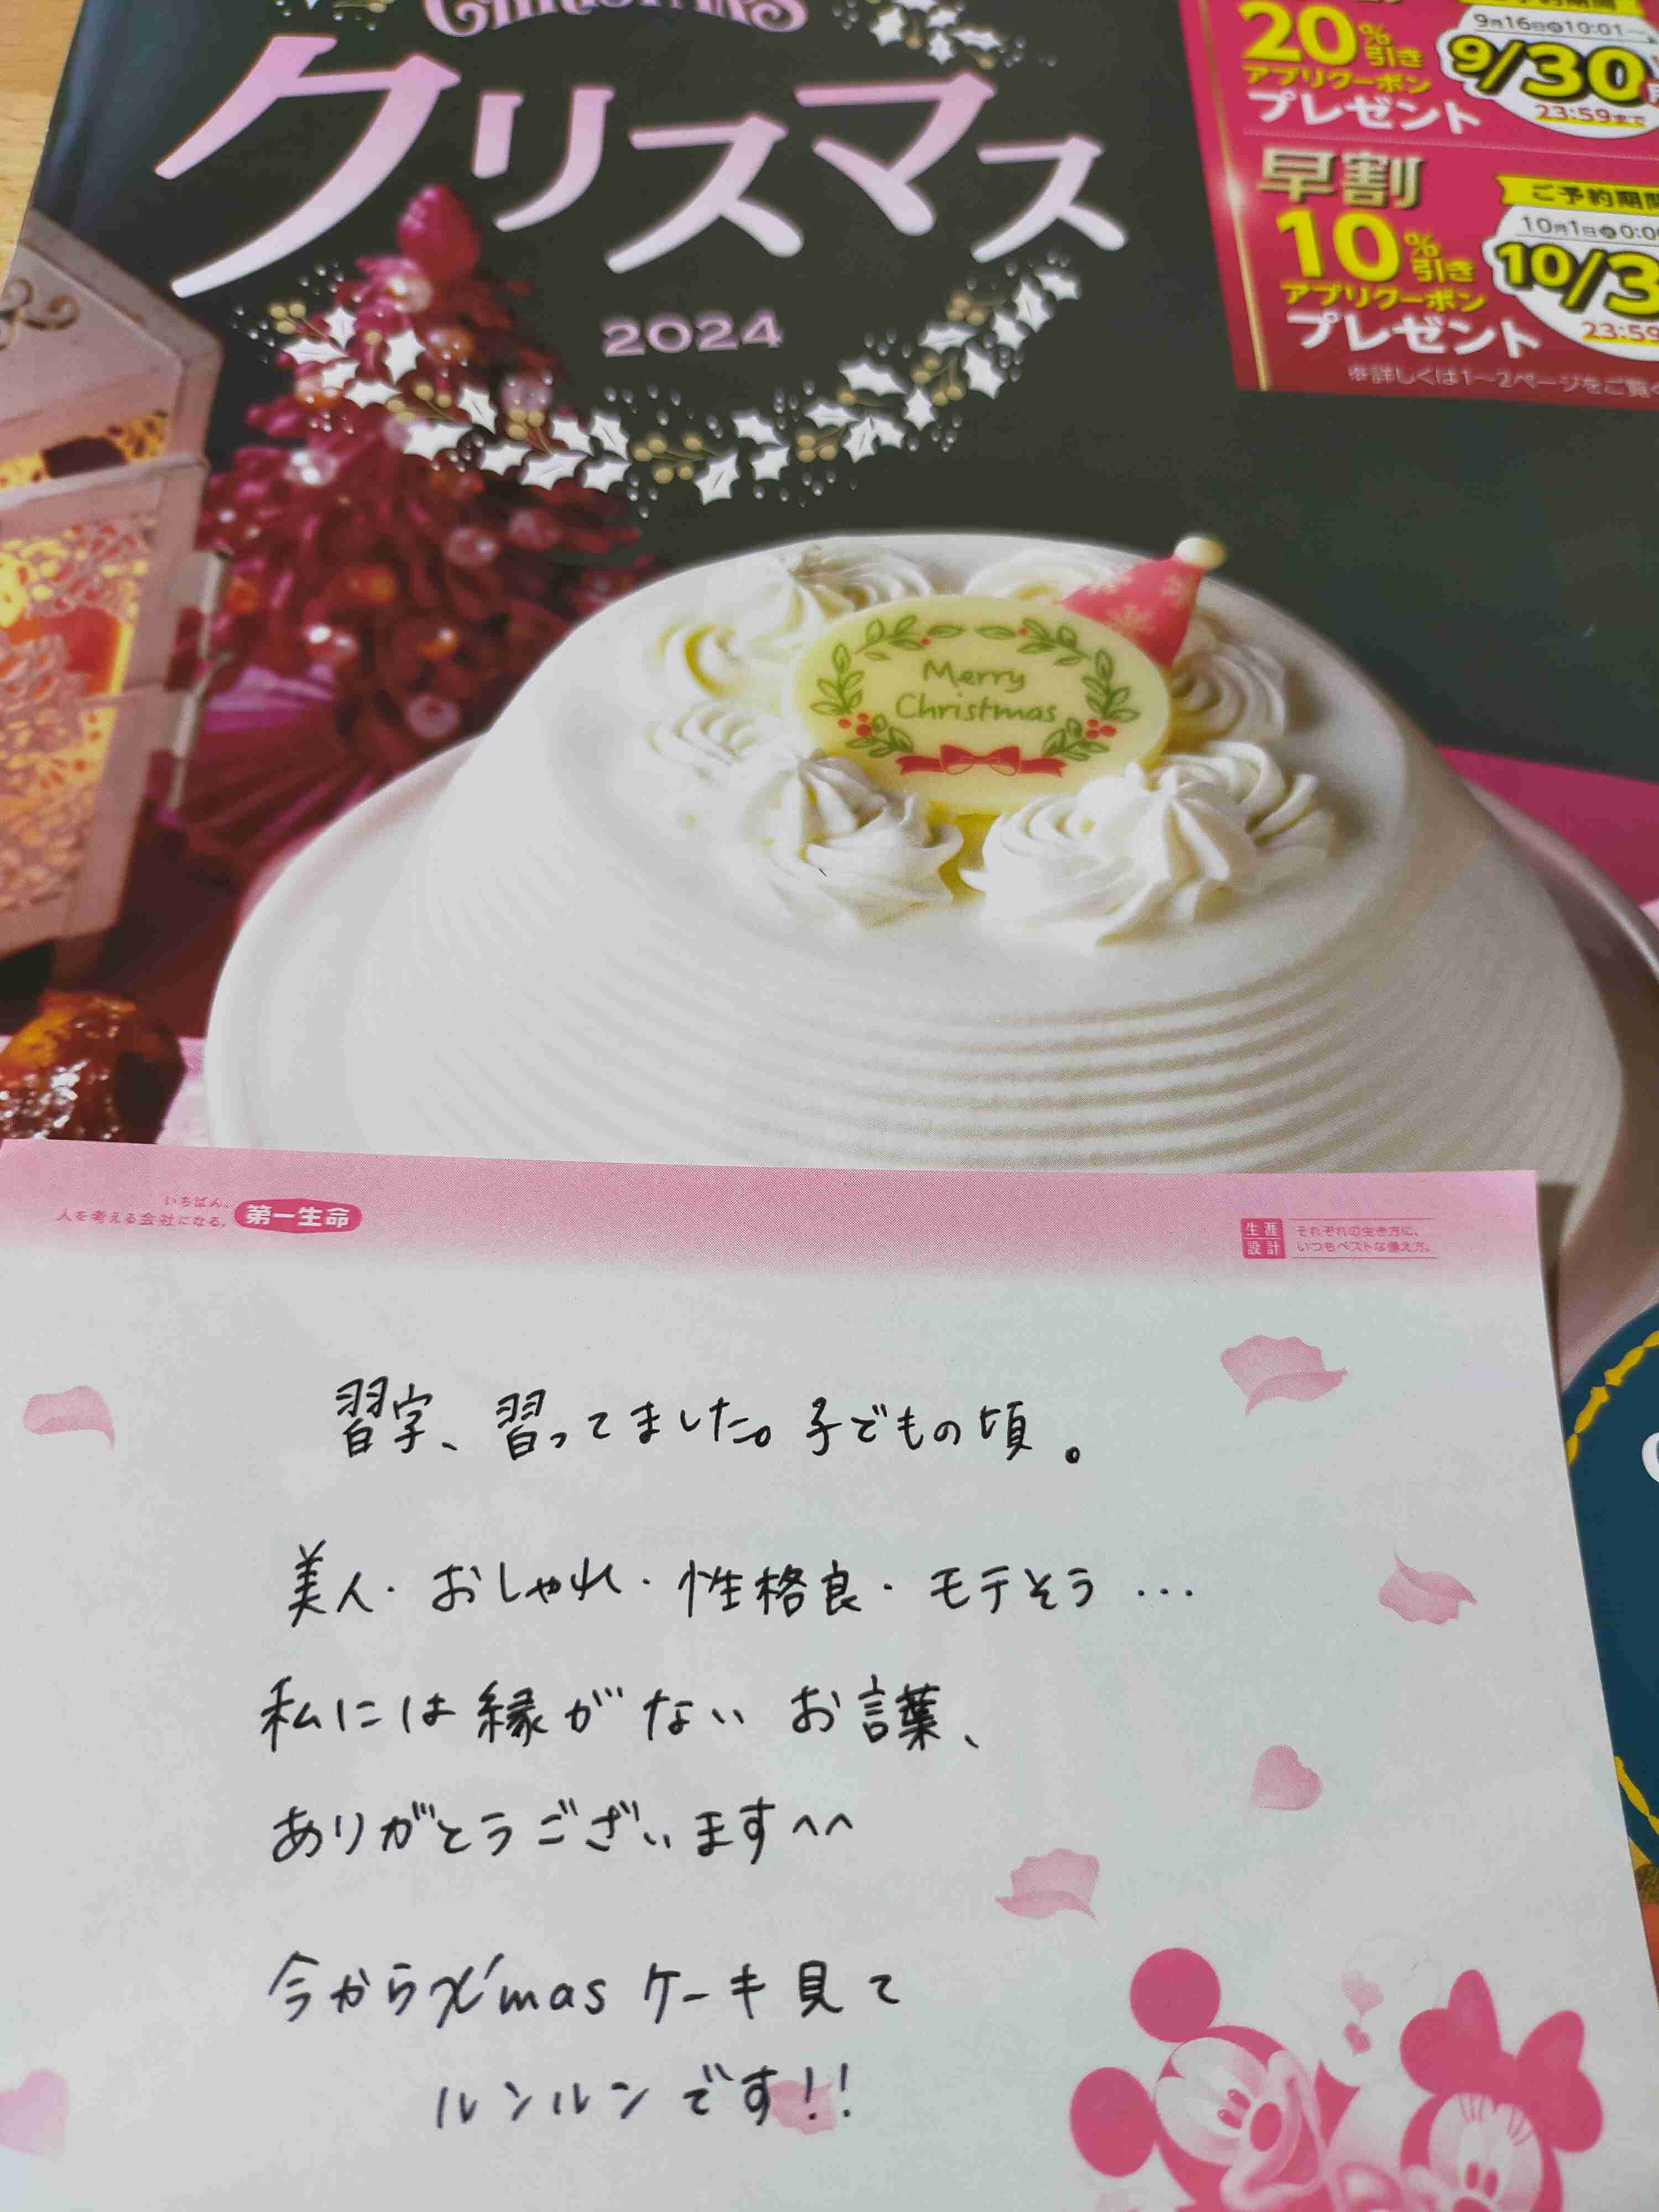 CHRISTMAS
クリスマス
2024
20%引き
アプリクーポン
プレゼント
9月16日 10:01～
9/30
23:59まで
早割
10%引き
アプリクーポン
プレゼント
ご予約期間
10月1日 0:00
10/3
23:59
※詳しくは1～2ページをご覧く
Merry
Christmas
いちばん、
人を考える会社になる。 第一生命
生涯設計
それぞれの生き方に、
いつもベストな備え方。
習字、習ってました。子どもの頃。
美人・おしゃれ・性格良・モテそう…
私には縁がないお言葉、
ありがとうございます^^
今からX'masケーキ見て
ルンルンです!!